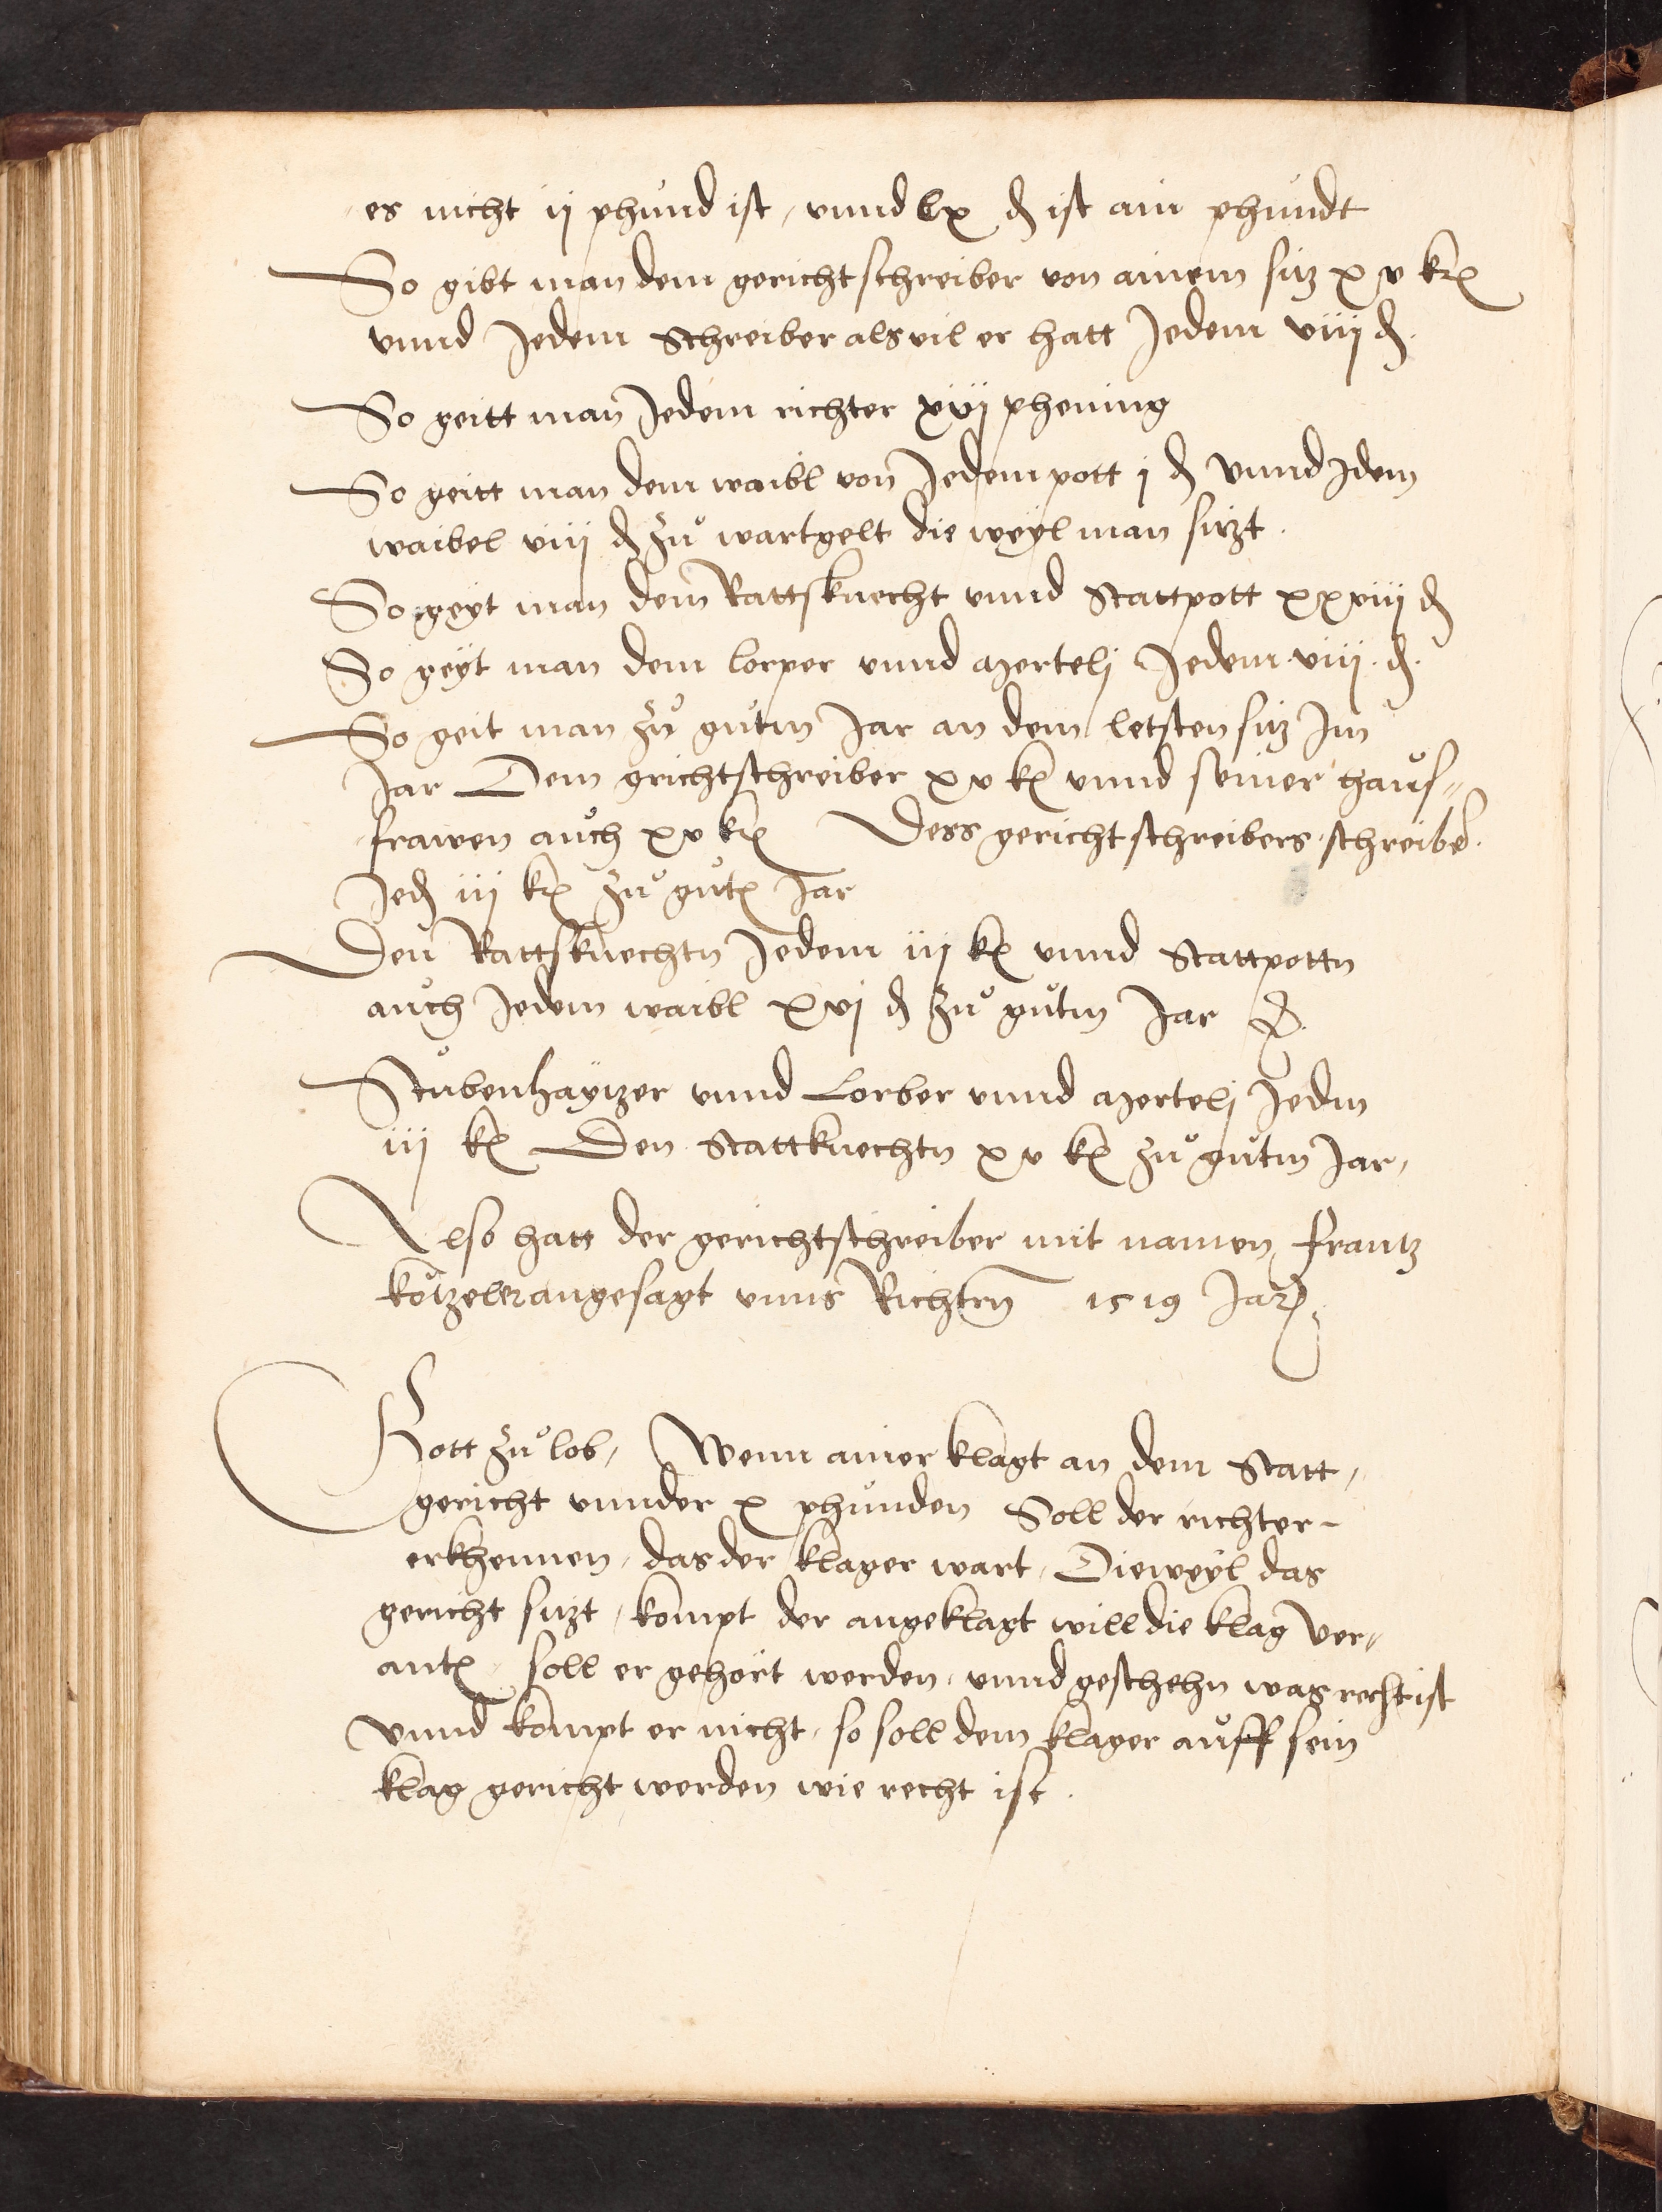 es nicht ij phund ist, vnnd lx ₰ ist ain phundt
So gibt man dem gerichtschreiber von ainem sitz xv kr
vnnd Jedem Schreiber als vil er hatt Jedem viij ₰.
So geitt man Jedem richter xvj phening
So geitt man dem waibl von Jedem pott j ₰ Vnnd Jdem
waibel viij ₰ zuͦ wartgelt die weyl man sitzt.
So geyt man dem Rattsknecht vnnd Stattpott xxviij ₰
So geyt man dem lorper vnnd azertelj Jedem viij ₰.
So geit man zuͦ gutm Jar an dem letsten sitz Jm
Jar Dem grichtschreiber xv kr vnnd seiner haus„
frawen auch xv kr Dess gerichtschreibers schreiber
Jed iij kr zuͦ gutn Jar
Den Rattsknechtn Jedem iij kr vnnd Stattpottn
auch Jedem waibl xvj ₰ zuͦ gutm Jar
Stubenhaytzer vnnd Lorber vnnd azertelj Jedm
iij kr Den Stattknechtn xv kr zuͦ gutm Jar,
Also hatt der gerichtschreiber mit namen Frantz
kötzeler angesagt vnns Richtern 1519 Jar
Gott zuͦ lob, Wenn ainer klagt an dem Statt,
gericht vnnder x phunden Soll der richter
erkhennen, das der klager wart, Dieweyl das
gericht sitzt, kompt der angeklagt will die klag Ver„
antn, soll er gehört werden, vnnd geschehn was recht ist
Vnnd kompt er nicht, so soll dem klager auff sein
klag gericht werden wie recht ist.